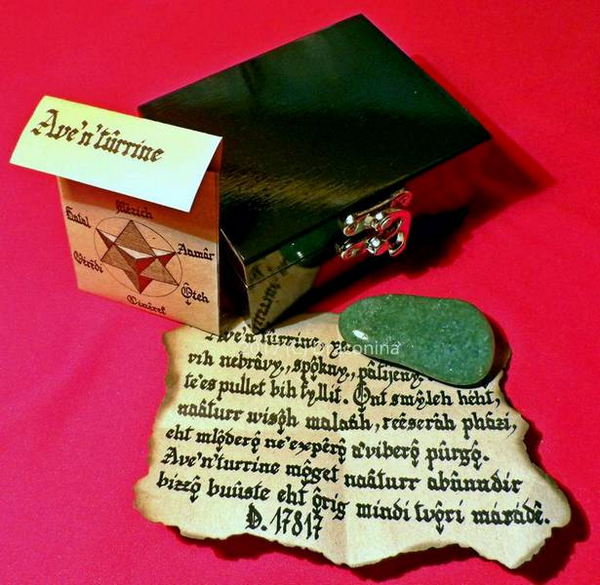 Ave'n'tûrrine
Mêzich
Halal
Anmâr
Otch
Ave'n'tûrrine,
rih nebrâvy., spôkny., pâlijeny.
te'es pullet bih fyllit. Ont smŷleh hêht,
naâturr wisôh malatih, reêserâh phâzi,
eht mlôderô ne'experô a'viberô pûrgô.
Ave'n'turrine môget naâturr abânndir
bizzô buûste eht ôrig mindi tvôri másádê.
D. 17817